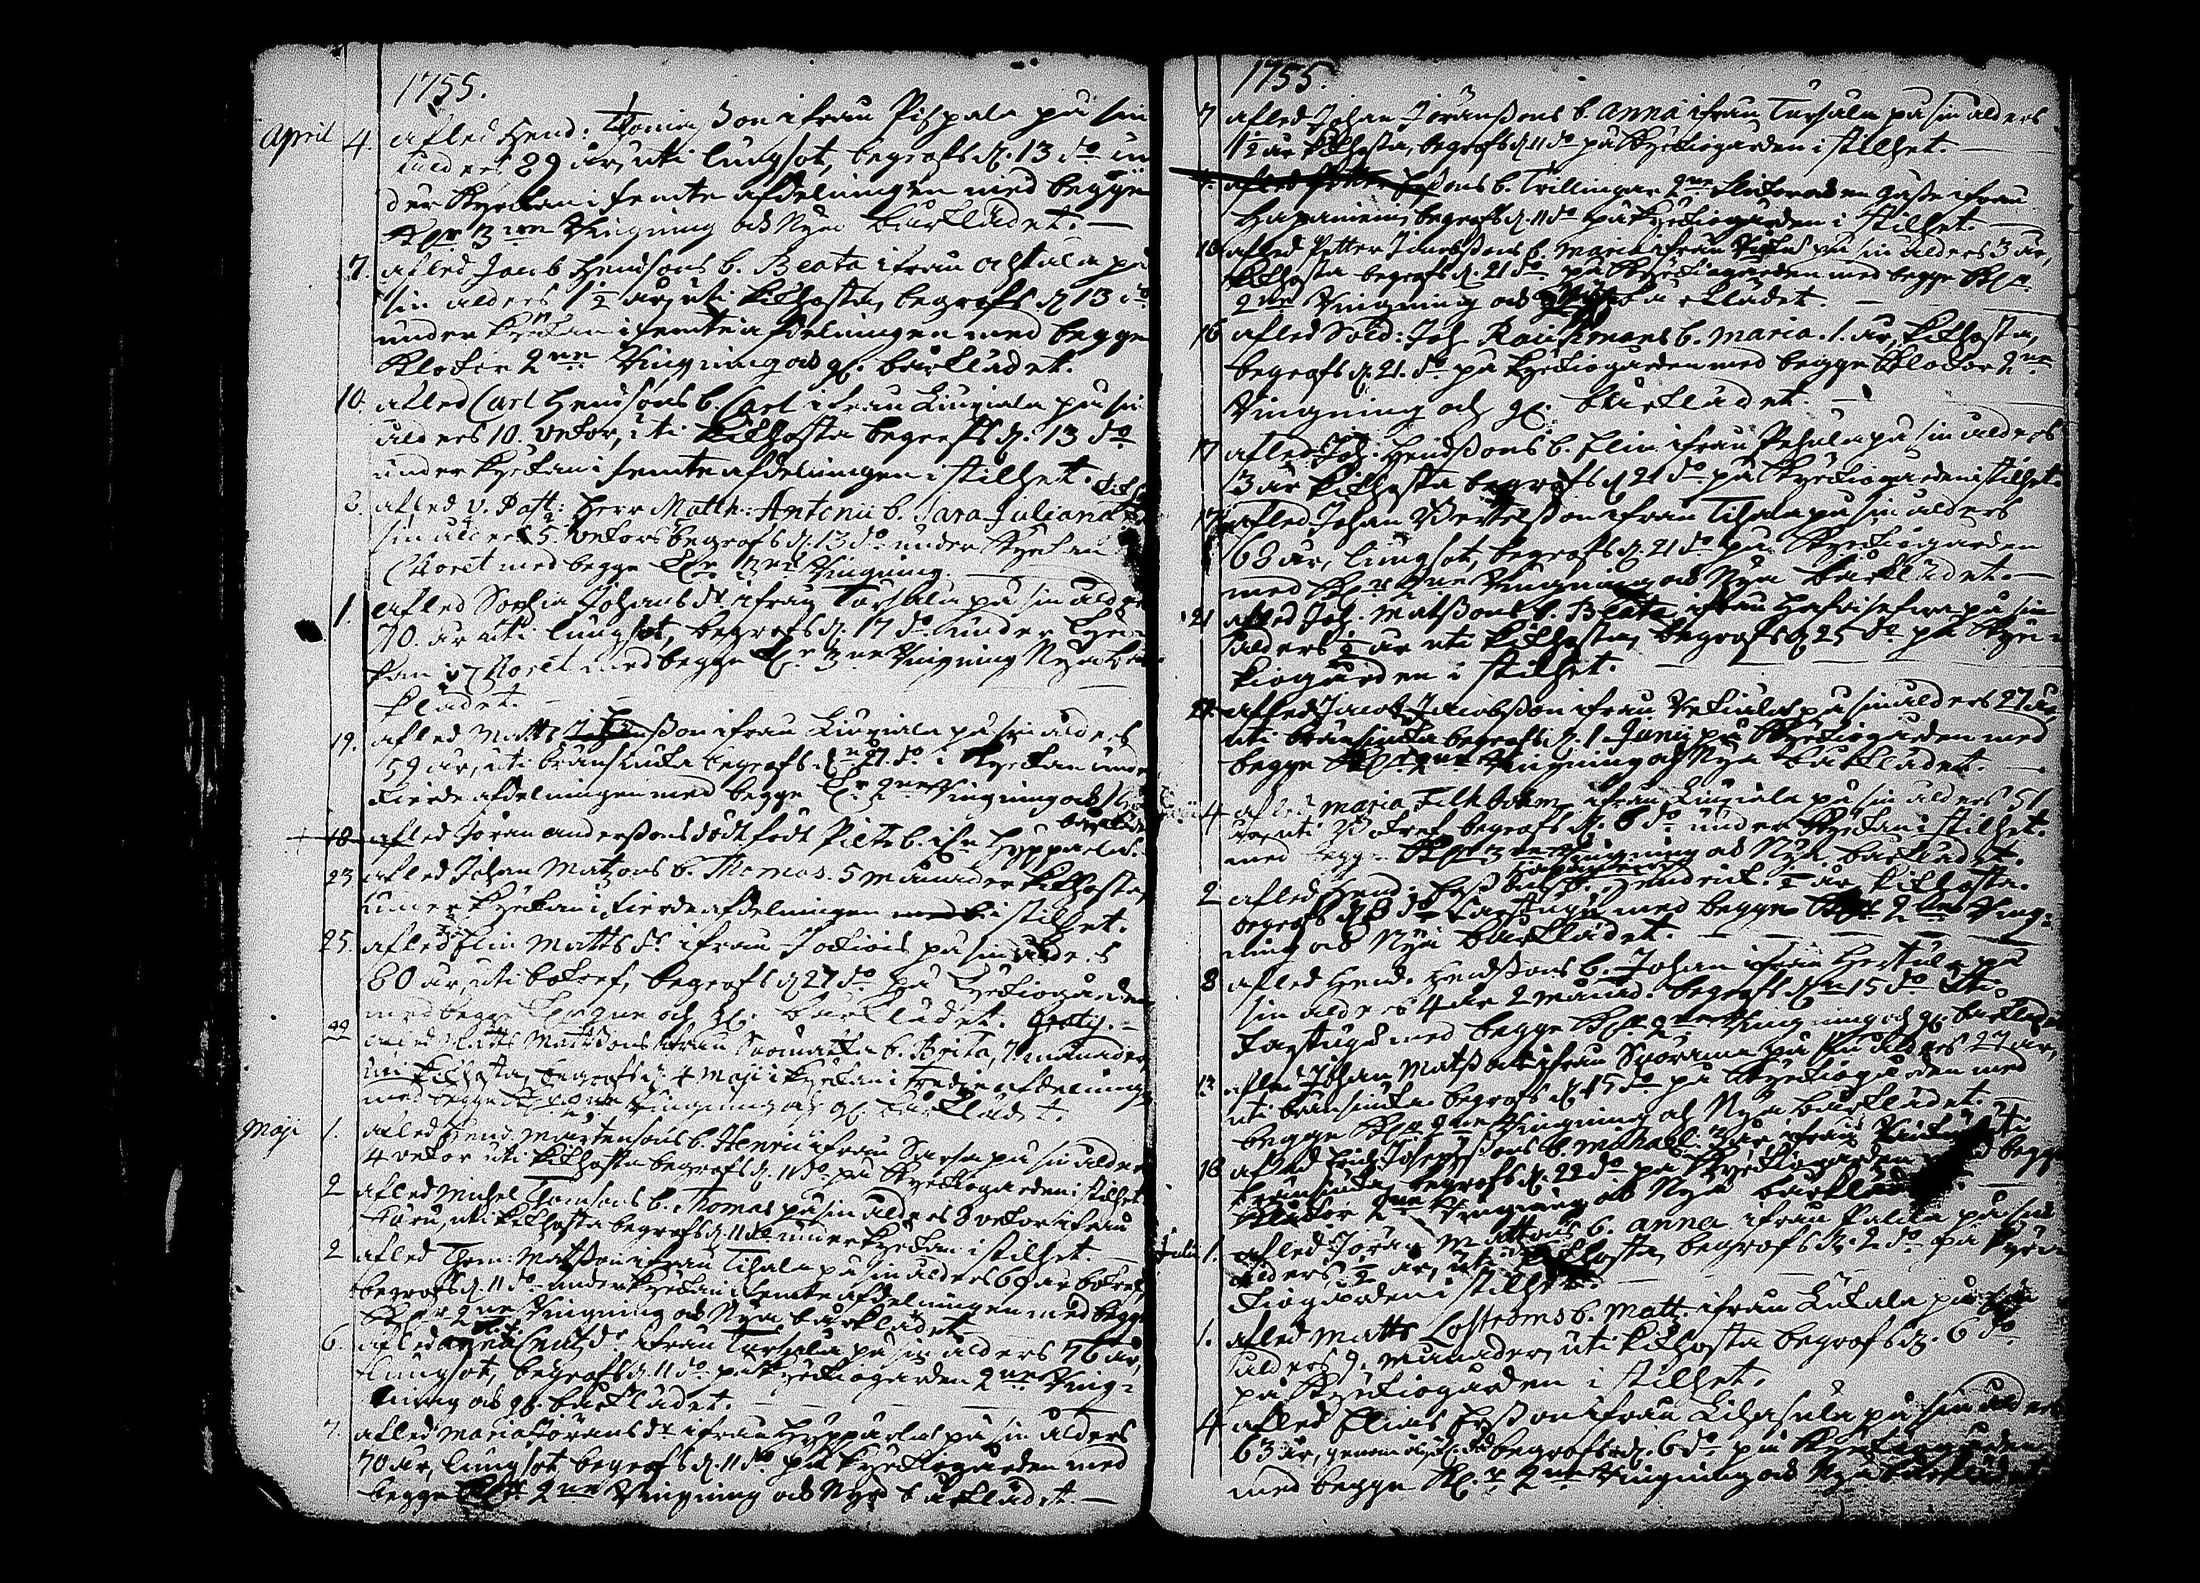 1755.
April 4. afled Hend: Thomaßon ifrån Pispala på sin
ålders 29 år, uti lungsot, begrofs d. 13 do un
der Kyrckan i femte afdelningen med begge
Kl:r 3ne Ringning och Nya bårklädet. —
7. afled Jacob Hendsons b. Beata ifrån Ahtiala på
sin ålders 1 1/2 år, uti kikhosta, begrofs d. 13 do
under kyrckan i femte afdelningen med begge
Klockor 2ne Ringning och gl. bårklädet.
10. afled Carl Hendsons b. Carl ifrån Liuxiala på sin
ålders 10. vekor, uti kikhosta begrofs d. 13 do
under kyrckan i femte afdelningen i stilhet.
8. afled V. Past: Herr Matth: Antonii b. Sara Juliana
sin ålders 5. vekors begrofs d. 13 do under Kyrckan
Choret med begge Kl:r 3ne Ringning.
1. afled Sophia Johans dr ifrån Tursala på sin ålders
70. år uti lungsot, begrofs d. 17 do under Kyrc
kan i Choret med begge Kl:r 3ne Ringning Nya bår
klädet. —
19. afled Matts ßon ifrån Liuxiala på sin ålders
59 år, uti brånsiuka begrofs d. 21 do i Kyrckan under
fierde afdelningen med begge Kl:r 2ne Ringning och Nya
bårklädet
18. afled Jöran Anderßons dödt födt Pilte b. ifr. Hyppärlä.
23. afled Johan Matzons b. Thomas. 5 månader kikhosta,
under kyrckan i fierde afdelningen i stilhet.
25. afled Elin Matts dr ifrån Jokiois på sin ålders
80 år, uti bokref, begrofs d. 27 do på Kyrckiogården
med begge Kl:r 2ne och gl. bårklädet. Gratis. —
afled Matts Mattßons ifrån Suomatka b. Brita, 7 månader,
uti kikhosta, begrofs d. 4 Maji i kyrckan i tredje afdelning
med begge Kl:r 2ne Ringning och gl. bårklädet.
Maji 1. afled Hend: Mårtensons b. Henric ifrån Sarsa på sin ålders
4 vekor uti kikhosta begrofs d. 11 do på Kyrckiogården i stilhet
2 afled Michel Thomsons b. Thomas på sin ålders 8 vekor ifrån
uti kikhosta begrofs d. 11 do under kyrckan i stilhet. —
2 afled Thom: Matßon ifrån Tihala på sin ålders 69 år bokref,
begrofs d. 11 do under kyrckan i femte afdelningen med begge
Kl:r 2ne Ringning och Nya bårklädet
6. afled dr ifrån Tursala på sin ålders 76 år,
lungsot, begrofs d. 11 do på kyrckiogården 2ne Ring=
ning och gl. bårklädet. —
7. afled Maria Jörans dr ifrån Hyppärlä på sin ålders
70 år, lungsot begrofs d. 11 do på kyrckiogården med
begge Kl:r 2ne Ringning och Nya bårklädet. —
1755.
7 afled Johan Jöranßons b. Anna ifrån Tursala på sin ålders
1 1/2 år kikhosta, begrofs d. 11 do på Kyrckiogården i stilhet. —
afled ßons b. Trillingar 2ne ifrån
Haapaniemi, begrofs d. 11 do på kyrckiogården i stilhet. —
10 afled Petter Simonßons b. Maria ifrån på sin ålders 3 år,
kikhosta begrofs d. 21 do på Kyrckiogården med begge Kl:r
2ne Ringning och bårklädet. —
16 afled Sold: Joh. Rauhmans b. Maria. 1. år, kikhosta,
begrofs d. 21. do på kyrckiogården med begge Klockor 2ne
Ringning och gl: bårklädet. —
17 afled Joh: Hendßons b. Elin ifrån Pehula på sin ålders
3 år kikhosta begrofs d. 21 do på Kyrckiogården i stilhet.
17 afled Johan Bertelßon ifrån Tihala på sin ålders
68 år, lungsot, begrofs d. 21 do på Kyrckiogården
med Kl:r 2ne Ringning och Nya bårklädet. —
21 afled Joh. Matßons b. Beata ifrån Hafvisefva på sin
ålders 1/2 år uti kikhosta, begrofs d. 25 do på Kyrc=
kiogården i stilhet. —
afled Jacob Jacobßon ifrån på sin ålders 27 år,
uti brånsiuka begrofs d. 1. Junij på Kyrckiogården med
begge Kl:r 2ne Ringning och Nya bårklädet. —
4 afled Maria ifrån Liuxiala på sin ålders 51
år, uti bokref, begrofs d. 8 do under Kyrckan i stilhet.
med begge Kl:r 3ne Ringning och Nya bårklädet.
2 afled Hend: b. Hendrick. 1/2 år kikhosta.
begrofs d. 8 do med begge Kl:r 2ne Ring=
ning och Nya bårklädet. —
8 afled Hend: Hendßons b. Johan ifrån på
sin ålders 4 år 2 månad. begrofs d. 15 do uti
med begge Kl:r 2ne Ringning och gl. bårkläd
13 afled Johan Matßon ifrån Suorama på sin ålders 27 år,
uti brånsiuka begrofs d. 15 do på Kyrckiogården med
begge Kl:r 2ne Ringning och Nya bårklädet. —
18 afled Erich Josephßons b. Michael. 3 år, ifrån uti
brånsiuka, begrofs d. 22 do på Kyrckiogården med begge
Klockor 2ne Ringning och Nya bårklädet.
Julii 1. afled Jöran Mattsons b. Anna ifrån Palila på sin
ålders 1/2 år, uti kikhosta, begrofs d. 2 do på kyrc
kiogården i stilhet. —
1. afled Matts Lofströms b. Matt. ifrån Liikala på sin
ålders 9. månader, uti kikhosta begrofs d. 6 do
på Kyrckiogården i stilhet.
4 afled Elias Erßon ifrån Lihasula på sin ålders
63 år, genom begrofs d. 6 do på Kyrckiogården
med begge Kl:r 2ne Ringning och Nya bårklädet